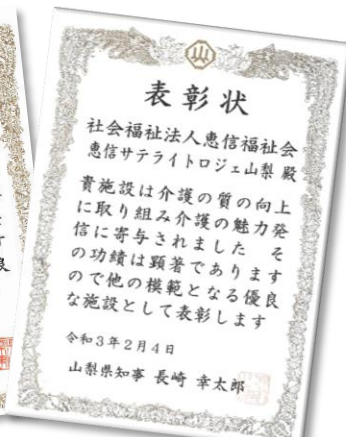 山
表彰状
社会福祉法人恵信福祉会
恵信サテライトロジェ山梨 殿
貴施設は介護の質の向上
に取り組み介護の魅力発
信に寄与されました そ
の功績は顕著であります
ので他の模範となる優良
な施設として表彰します
令和3年2月4日
山梨県知事 長崎 幸太郎
良